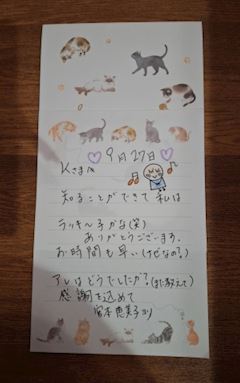 9月27日
Kさま
知ることができて 私は
ラッキー子かな(笑)
ありがとうございます。
お時間も早い(けどなの?)
アレはどうでしたか?(また教えて)
感謝を込めて
宮本恵美子より